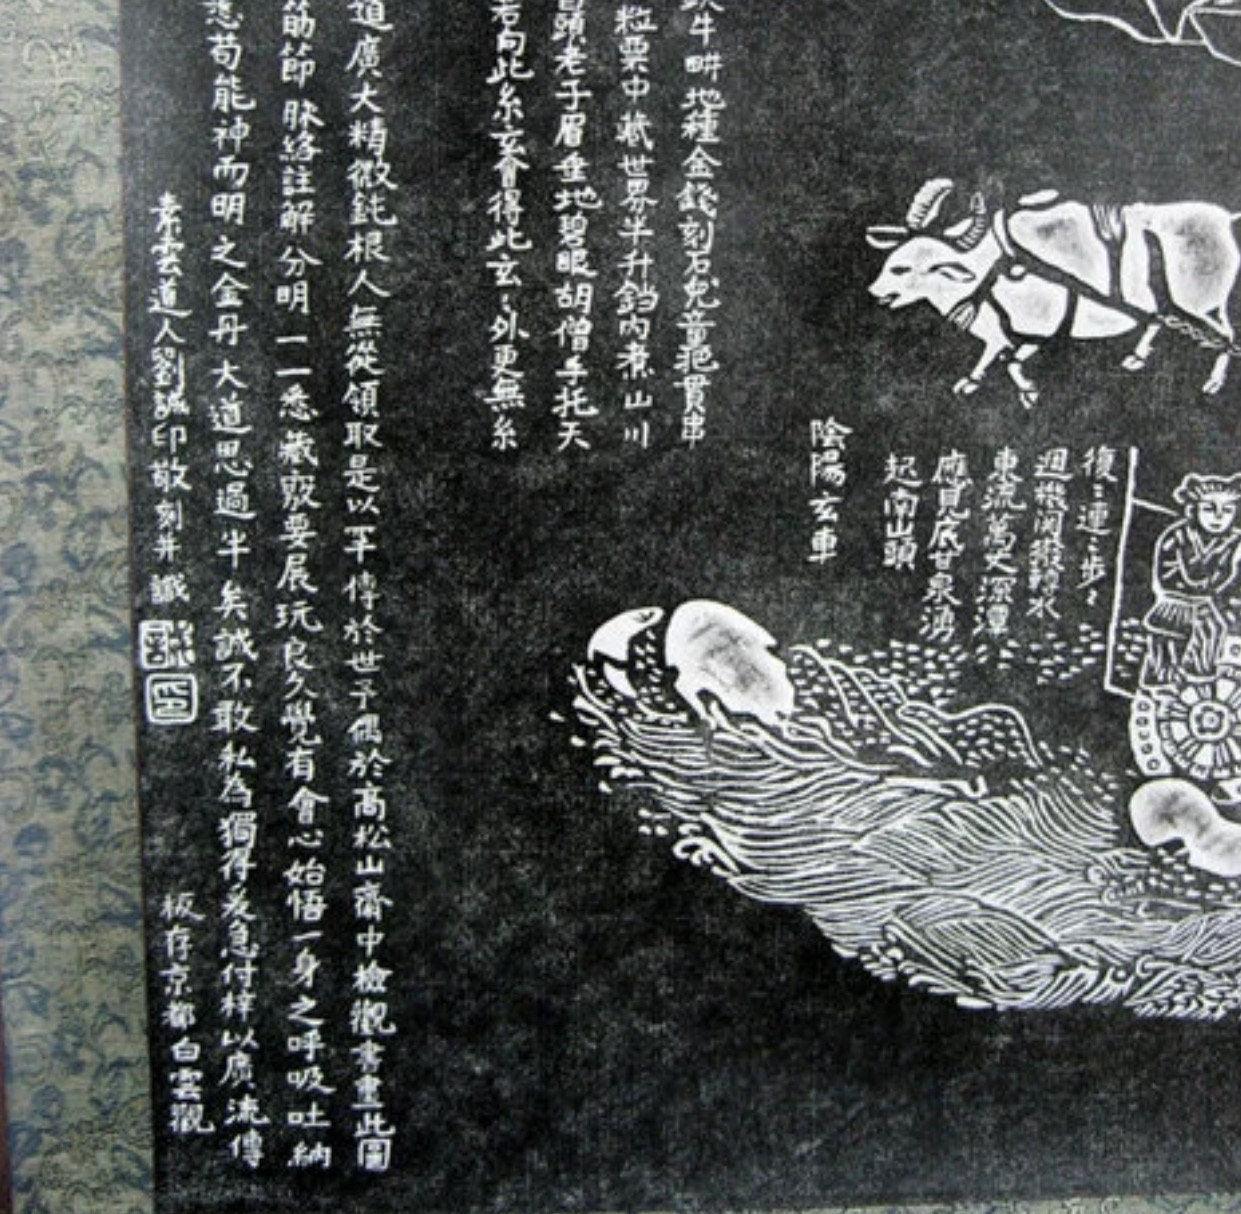 復〻連〻步〻
週機關撥轉水
東流萬丈深潭
應見底甘泉湧
起南山頭
陰陽玄車
牛畊地種金錢刻石兒童把貫串
粒粟中藏世界半升鐺內煮山川
頭老子眉垂地碧眼胡僧手托天
若向此玄玄會得此玄〻外更無玄
道廣大精微鈍根人無從領取是以罕傳於世予偶於高松山齋中檢觀書畫此圖
筋節脉絡註解分明一一悉藏竅要展玩良久覺有會心始悟一身之呼吸吐納
息苟能神而明之金丹大道思過半矣誠不敢私為獨得爰急付梓以廣流傳
素雲道人劉誠印敬刻並識
板存京都白雲觀